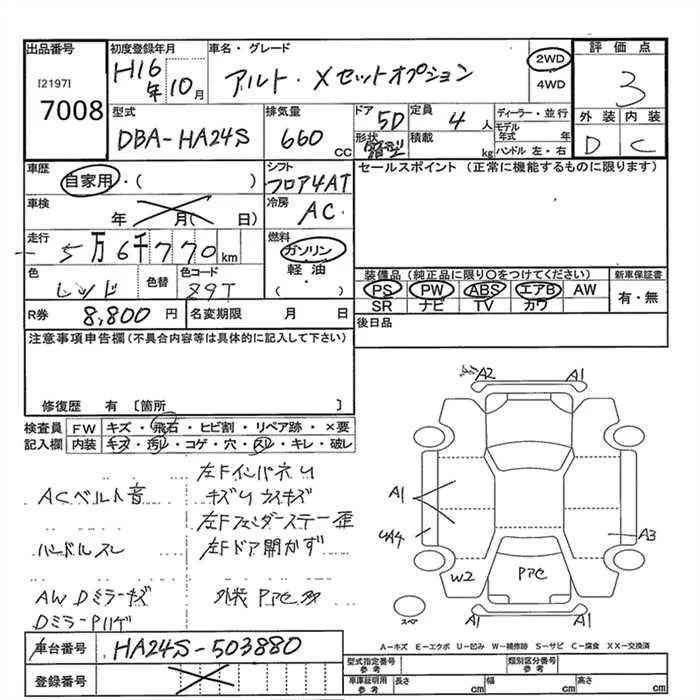 出品番号
[2197]
7008
初度登録年月
H16年10月
車名・グレード
アルト・Xセットオプション
2WD
4WD
評価点
3
外装 内装
D C
型式
DBA-HA24S
排気量
660 CC
ドア 5D
形状 箱型
定員 4 人
積載 kg
ディーラー・並行
モデル年式 年
ハンドル 左・右
車歴
自家用・( )
シフト
フロア4AT
セールスポイント (正常に機能するものに限ります)
車検
年 月( 日)
冷房
AC
走行
5万6千770 km
燃料
ガソリン
軽油
( )
色
レッド
色替
色コード
Z9T
装備品 (純正品に限り〇をつけてください)
PS PW ABS エアB AW
SR ナビ TV カワ
新車保証書
有・無
R券 8,800 円
名変期限 月 日
後日品
注意事項申告欄(不具合内容等は具体的に記入して下さい)
修復歴 有 [箇所 ]
検査員記入欄
FW キズ・飛石・ヒビ割・リペア跡・×要
内装 キズ・汚レ・コゲ・穴・スレ・キレ・破レ
ACベルト音
ハンドルスレ
AW Dミラーキズ
DミラーPハゲ
左Fインパネワレ
キズワレ ウスキズ
左Fフェンダーステー歪
左Fドア開かず
外装 Pアセ 多
A2 A1
A1
UA4
A3
W2
Pアセ
A1 A1
スペア
A-キズ E-エクボ U-凹み W-補修跡 S-サビ C-腐食 XX-交換済
車台番号 HA24S-503880
登録番号
型式指定番号 参考
類別区分番号 参考
車庫証明用 参考 長さ cm 幅 cm 高さ cm